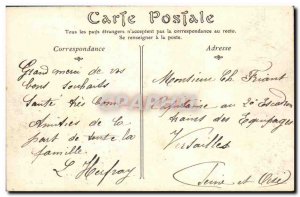 Carte Postale
Tous les pays étrangers n'acceptent pas la correspondance au recto.
Se renseigner à la poste.
Correspondance
Adresse
Grand merci de vos
bons souhaits
Santé très bon
Amitiés de la
part de toute la
famille
L. Heufray
Monsieur Ch. Friant
Capitaine au 20 Escadron
trains des Equipages
Versailles
Seine et Oise